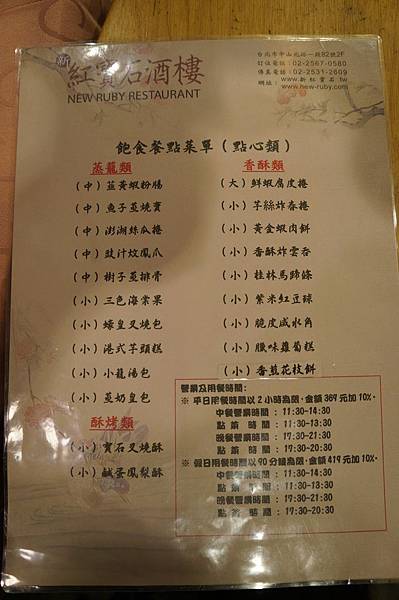 新
紅寶石酒樓
NEW RUBY RESTAURANT
台北市中山北路一段82號2F
訂位電話：02-2567-0580
傳真電話：02-2531-2609
網址：www.新紅寶石.tw
www.new-ruby.com
飽食餐點菜單（點心類）
蒸籠類
（中）韮黃蝦粉腸
（中）魚子蒸燒賣
（中）澎湖絲瓜捲
（中）豉汁炆鳳爪
（中）樹子蒸排骨
（小）三色海棠果
（小）蠔皇叉燒包
（小）港式芋頭糕
（小）小龍湯包
（小）蒸奶皇包
酥烤類
（小）寶石叉燒酥
（小）鹹蛋鳳梨酥
香酥類
（大）鮮蝦腐皮捲
（小）芊絲炸春捲
（小）黃金蝦肉餅
（小）香酥炸雲吞
（小）桂林馬蹄條
（小）紫米紅豆球
（小）脆皮咸水角
（小）臘味蘿蔔糕
（小）香煎花枝餅
營業及用餐時間：
※ 平日用餐時間以2小時為限，金額369元加10%。
中餐營業時間 ： 11:30-14:30
點菜時間 ： 11:30-13:30
晚餐營業時間 ： 17:30-21:30
點菜時間 ： 17:30-20:30
※ 假日用餐時間以90分鐘為限，金額419元加10%。
中餐營業時間 ： 11:30-14:30
點菜時間 ： 11:30-13:30
晚餐營業時間 ： 17:30-21:30
點菜時間 ： 17:30-20:30